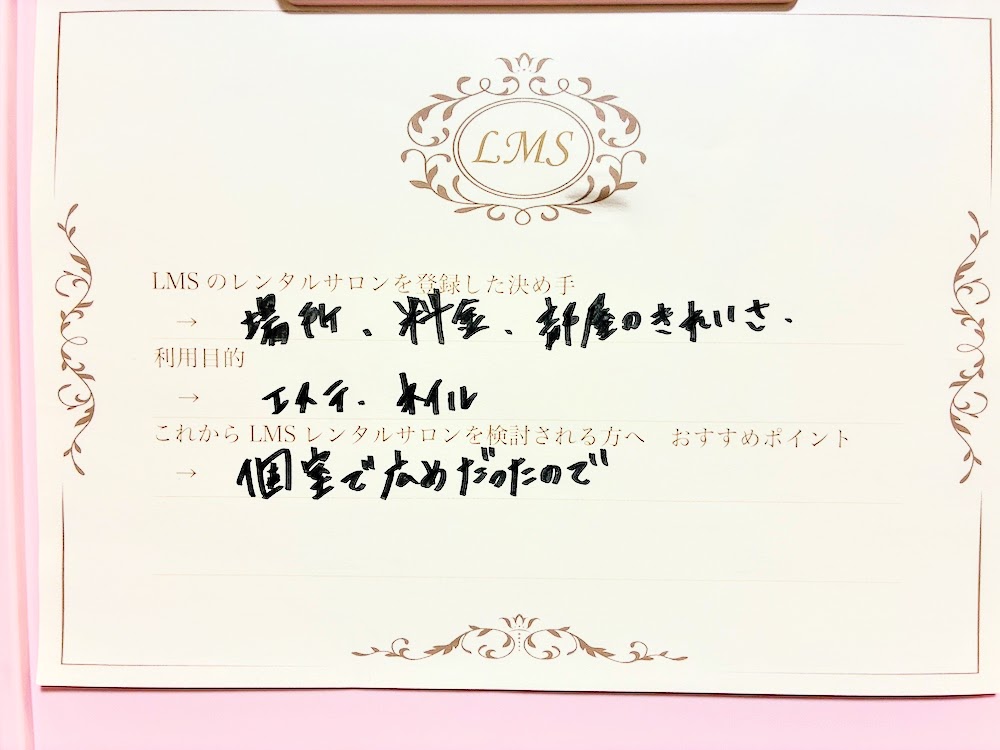 LMS
LMSのレンタルサロンを登録した決め手
→ 場所、料金、部屋のきれいさ.
利用目的
→ エステ. ネイル
これからLMSレンタルサロンを検討される方へ　おすすめポイント
→ 個室で広めだったので